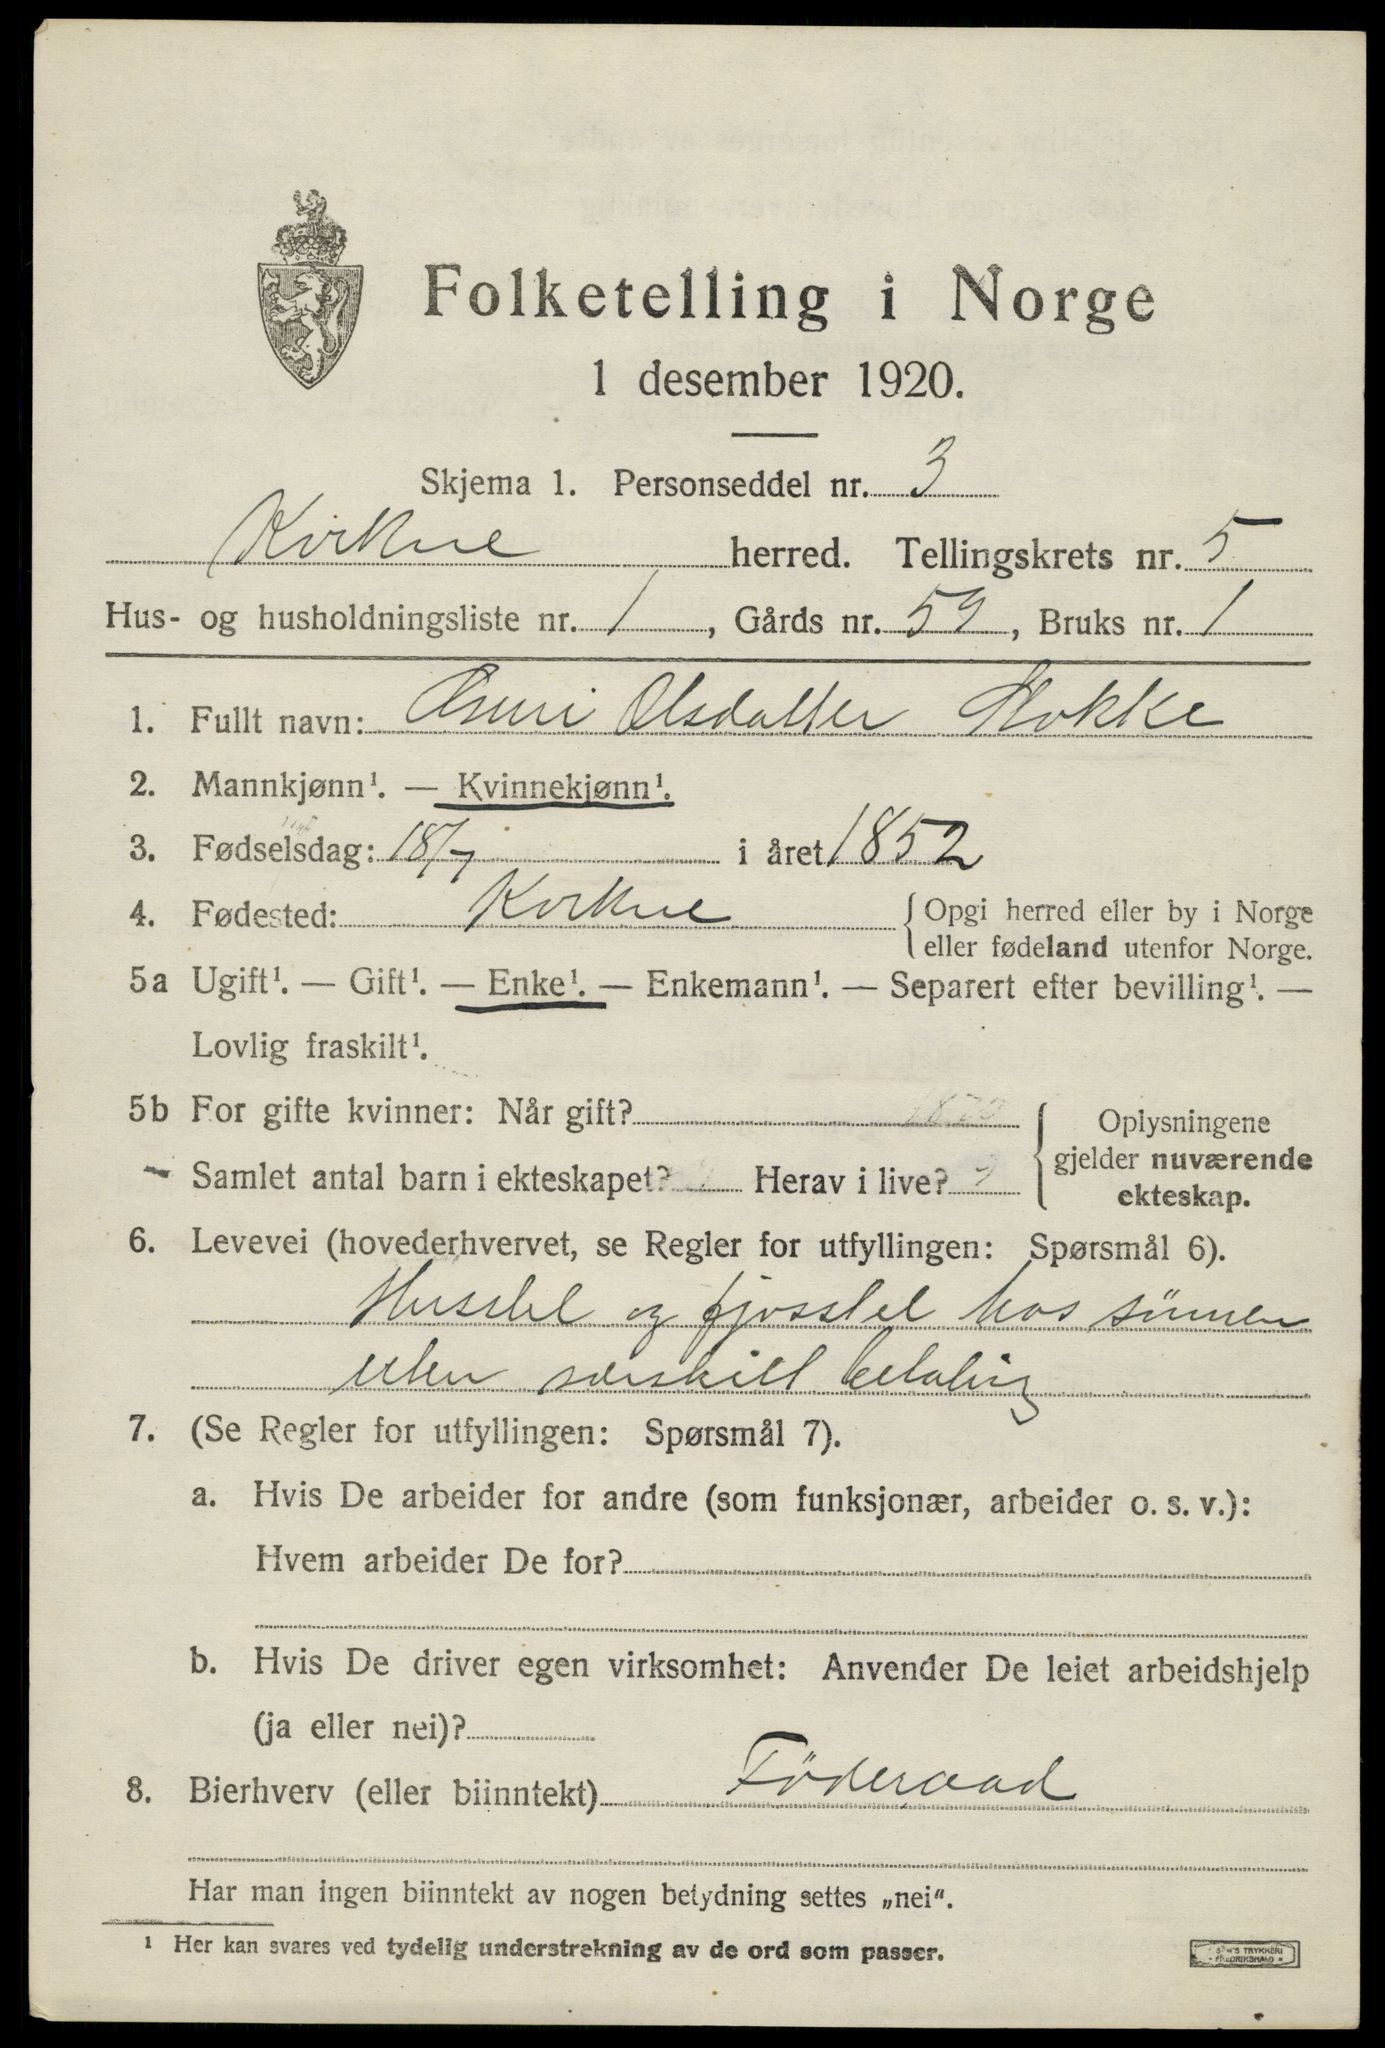 Folketelling i Norge
1 desember 1920.
Skjema 1. Personseddel nr. 3
Kvikne herred. Tellingskrets nr. 5
Hus- og husholdningsliste nr. 1, Gårds nr. 59, Bruks nr. 1
1. Fullt navn: Olsdatter
2. Mannkjønn¹. — Kvinnekjønn¹.
3. Fødselsdag: 18/7 i året 1852
4. Fødested: Kvikne {Opgi herred eller by i Norge
eller fødeland utenfor Norge.
5a Ugift¹. — Gift¹. — Enke¹. — Enkemann¹. — Separert efter bevilling¹. —
Lovlig fraskilt¹.
5b For gifte kvinner: Når gift?
Samlet antal barn i ekteskapet? Herav i live?
Oplysningene
gjelder nuværende
ekteskap.
6. Levevei (hovederhvervet, se Regler for utfyllingen: Spørsmål 6).
Husstel og fjosstel hos sönnen
uten særskilt betaling
7. (Se Regler for utfyllingen: Spørsmål 7).
a. Hvis De arbeider for andre (som funksjonær, arbeider o. s. v.):
Hvem arbeider De for?
b. Hvis De driver egen virksomhet: Anvender De leiet arbeidshjelp
(ja eller nei)?
8. Bierhverv (eller biinntekt) Föderaad
Har man ingen biinntekt av nogen betydning settes „nei“.
¹ Her kan svares ved tydelig understrekning av de ord som passer.